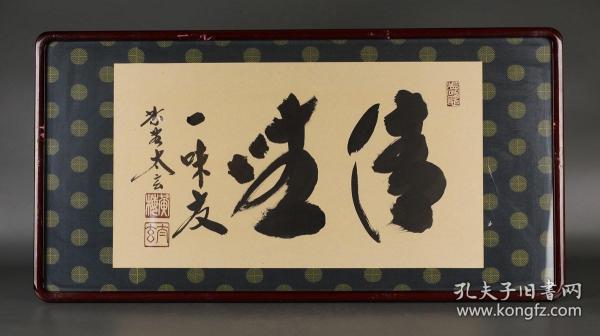 清坐
一味友
太玄
孔夫子旧書网
www.kongfz.com